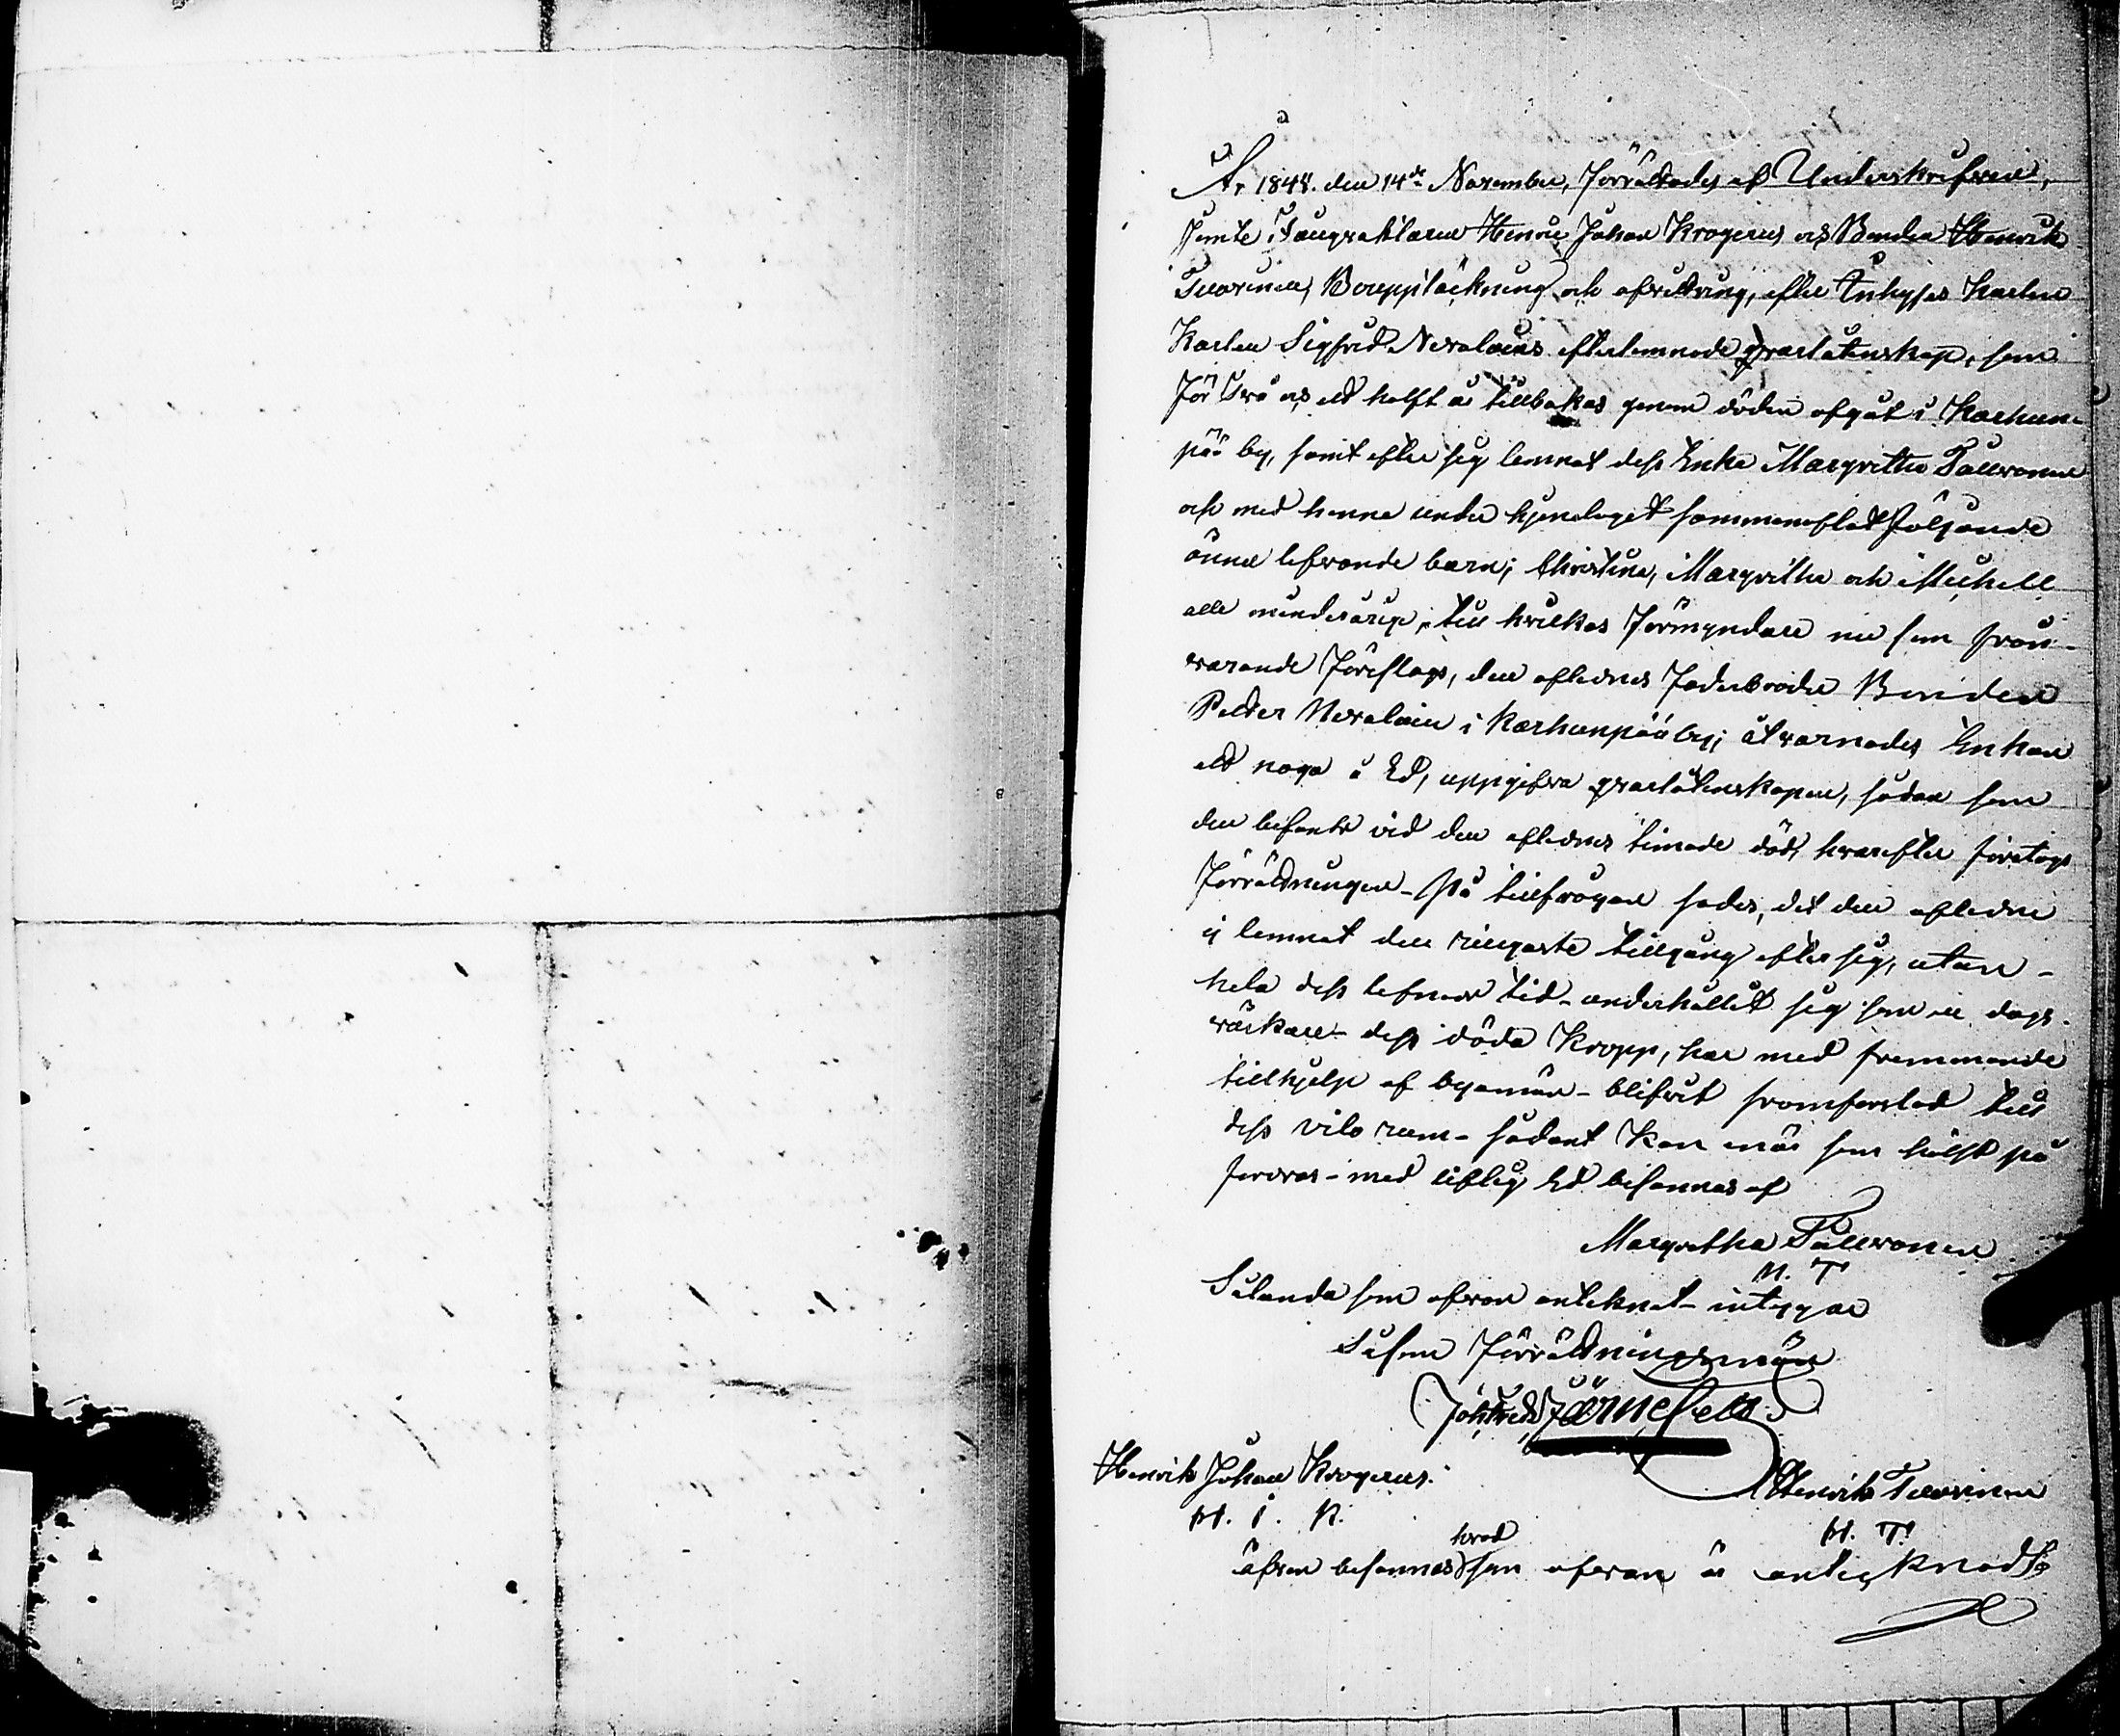 År 1848. den 14de November, förrättades af Underskrifven,
jemte Henric Johan Krogerus och Bonden Henrik
Tuovinen, Bouppteckning och afvittring, efter Inhyses Karlen
Karlen Sigfred Nevalains efterlemnade qvarlåtenskap, som
för två och ett halft år tillbakas genom döden afgåt i Karhun-
pää by, samt efter sig lemnat dess Enka Margretha Tallvonen
och med henne under hjonelaget sammanaflat följande
ännu lefvande barn; Christina, Margretha och Michell
alle minderårige, till hvilkas Förmyndare nu som från-
varande föreslogs, den aflednes faderbroder Bonden
Petter Nevalain i Karhunpää by; åtvarnades Enkan
att noga å Ed, uppgifva qvarlåtenskapen, sådan som
den befants vid den aflednes timade död, hvarefter företogs
Förrättningen - På tillfrågan sades, det den afledne
ej lemnat den ringaste tillgång efter sig, utan -
hela dess lefnads tid - underhållit sig som en dags-
värkare - dess döda Kropp, har med fremmande
tillhjelp af byamän - blifvit framforslad till
dess vilo rum - sådant Kan när som hälst på
fordras - med liflig Ed besannas af
Margretha Tallvonen
M. T
Sålunda som ofvan anteknat - intygar
Såsom Förrättningsmän
Joh Fredr Järnefelt
Henrik Johan Krogerus.
H. I. K.
Henrik Tuovinen
H. T.
äfven besannas hvad som ofvan är antecknadt